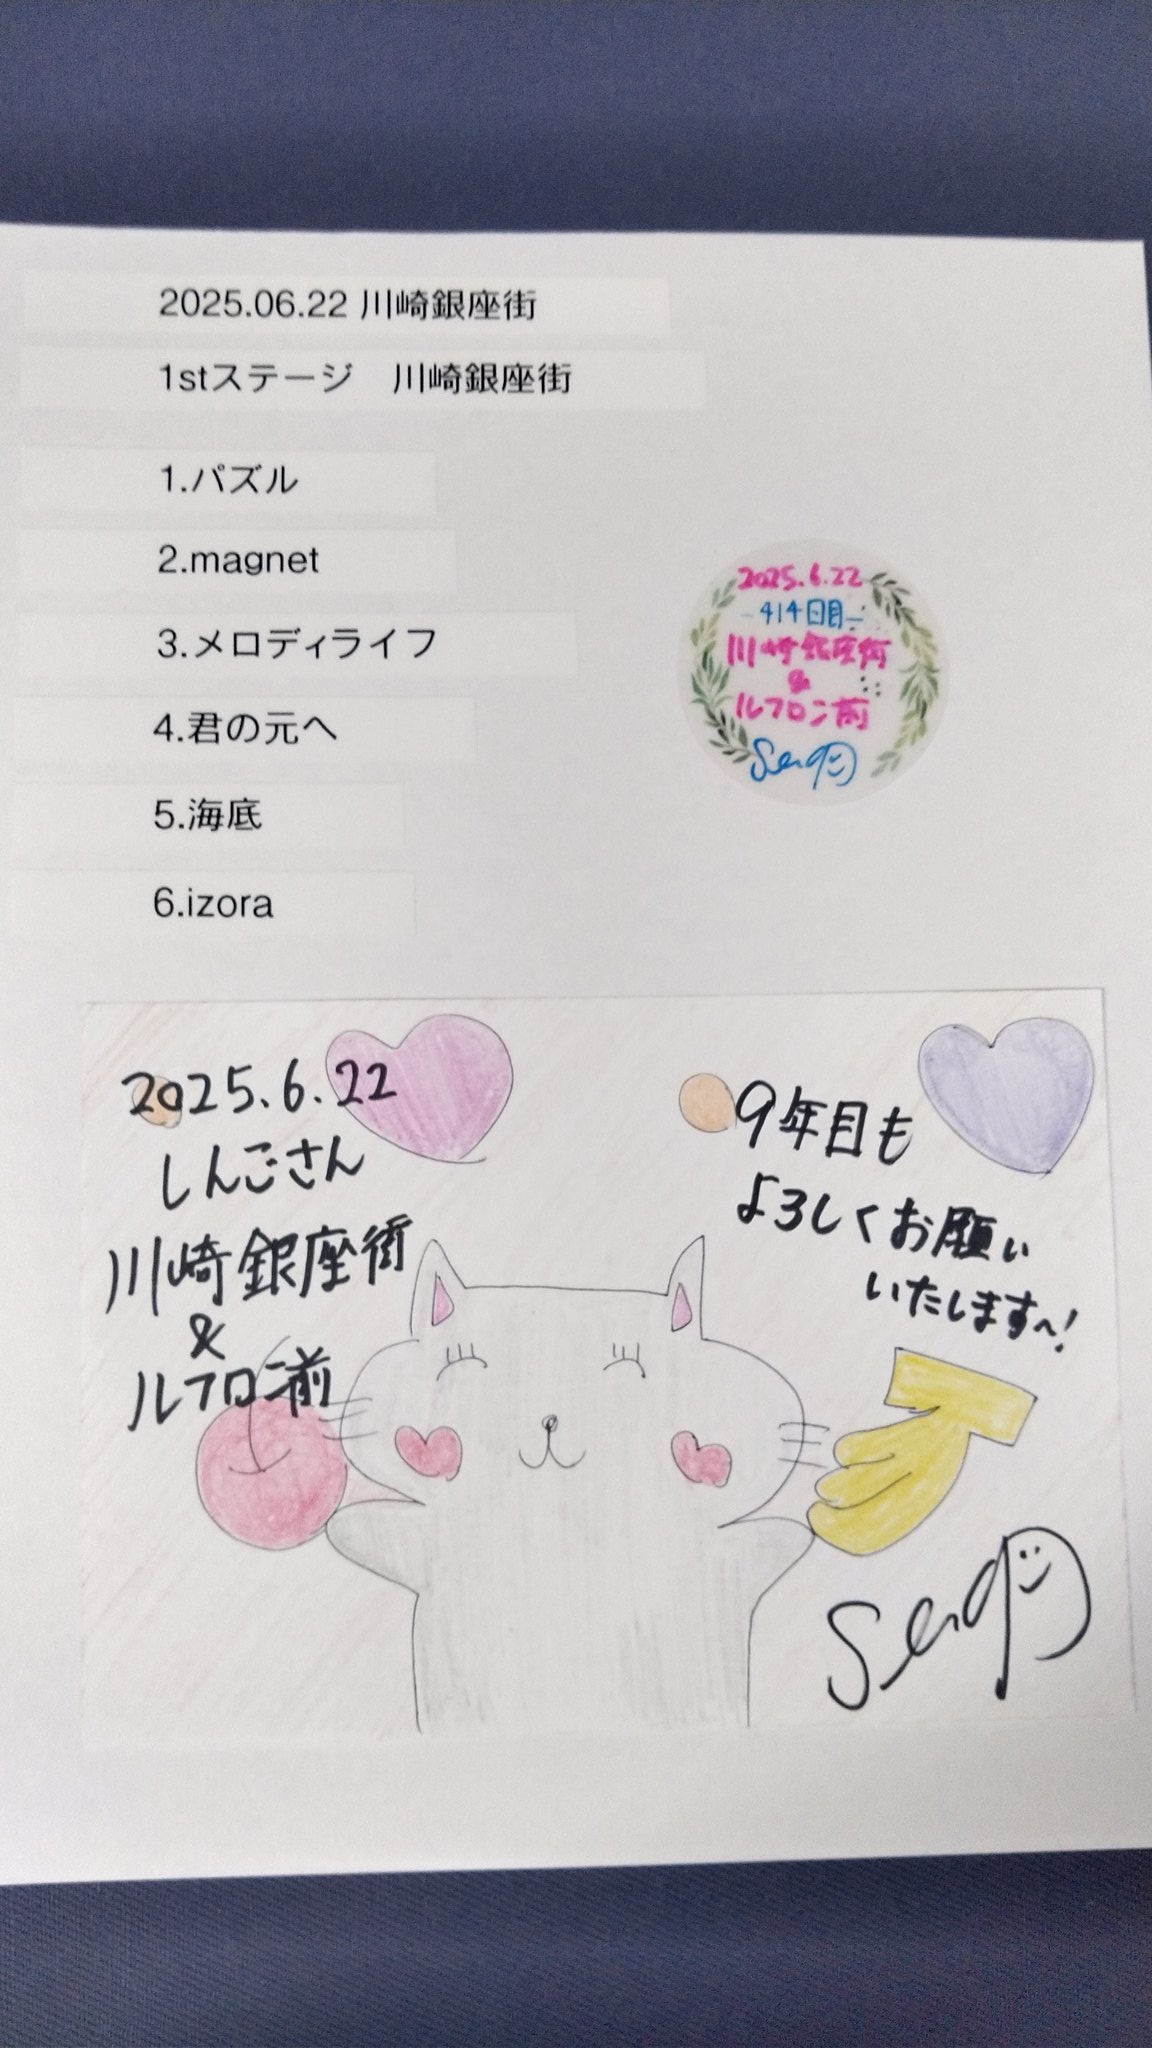 2025.06.22 川崎銀座街
1stステージ　川崎銀座街
1.パズル
2.magnet
3.メロディライフ
4.君の元へ
5.海底
6.izora
2025.6.22
-414日目-
川崎銀座街
&
ルフロン前
2025.6.22
しんごさん
川崎銀座街
&
ルフロン前
9年目も
よろしくお願い
いたします〜!